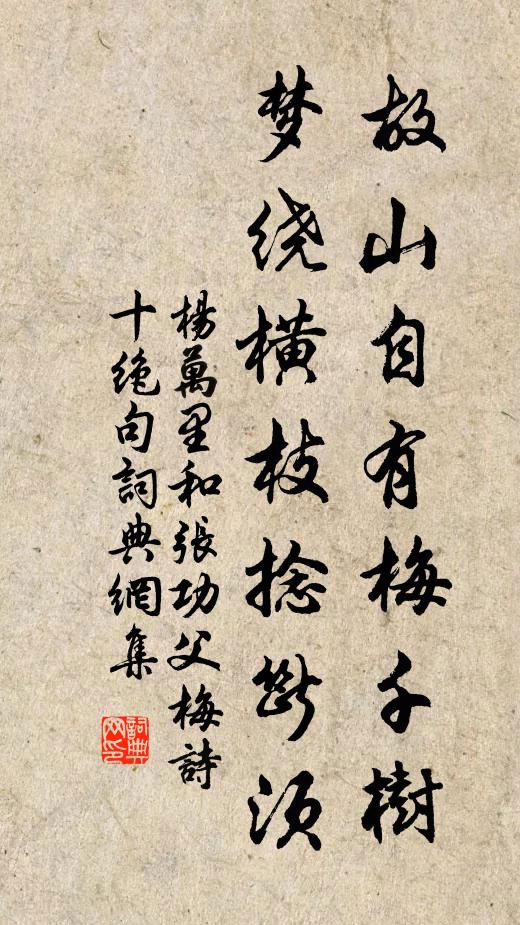 故山自有梅千樹
梦绕横枝捻断须
楊萬里和張功父梅詩
十绝句詞典網集
詞典网印